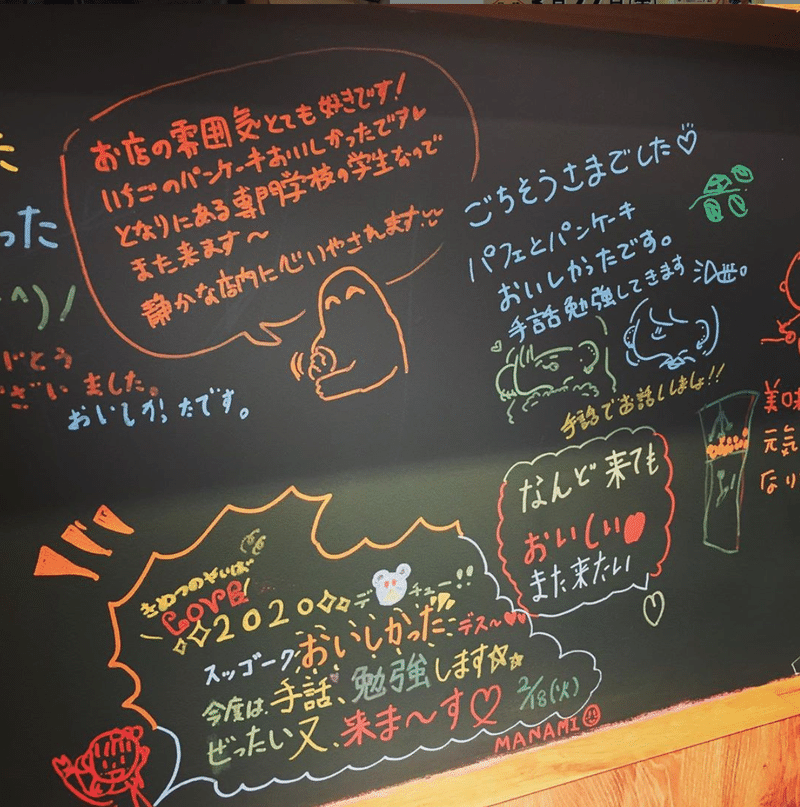 お店の雰囲気とても好きです!
いちごのパンケーキおいしかったです
となりにある専門学校の学生なので
また来ます〜
静かな店内に心いやされます
ごちそうさまでした♡
パフェとパンケーキ
おいしかったです。
手話勉強してきます
手話でお話しましょ!!
った
^)ノ
がとう
ざいました。
おいしかったです。
なんど来ても
おいしい
また来たい
美味
元気
なり
きめつのやいば
LOVE!
2020 デ チュー!!
スッゴークおいしかったデス〜
今度は、手話、勉強します
ぜったい又、来ま〜す♡
2/18(火)
MANAMI